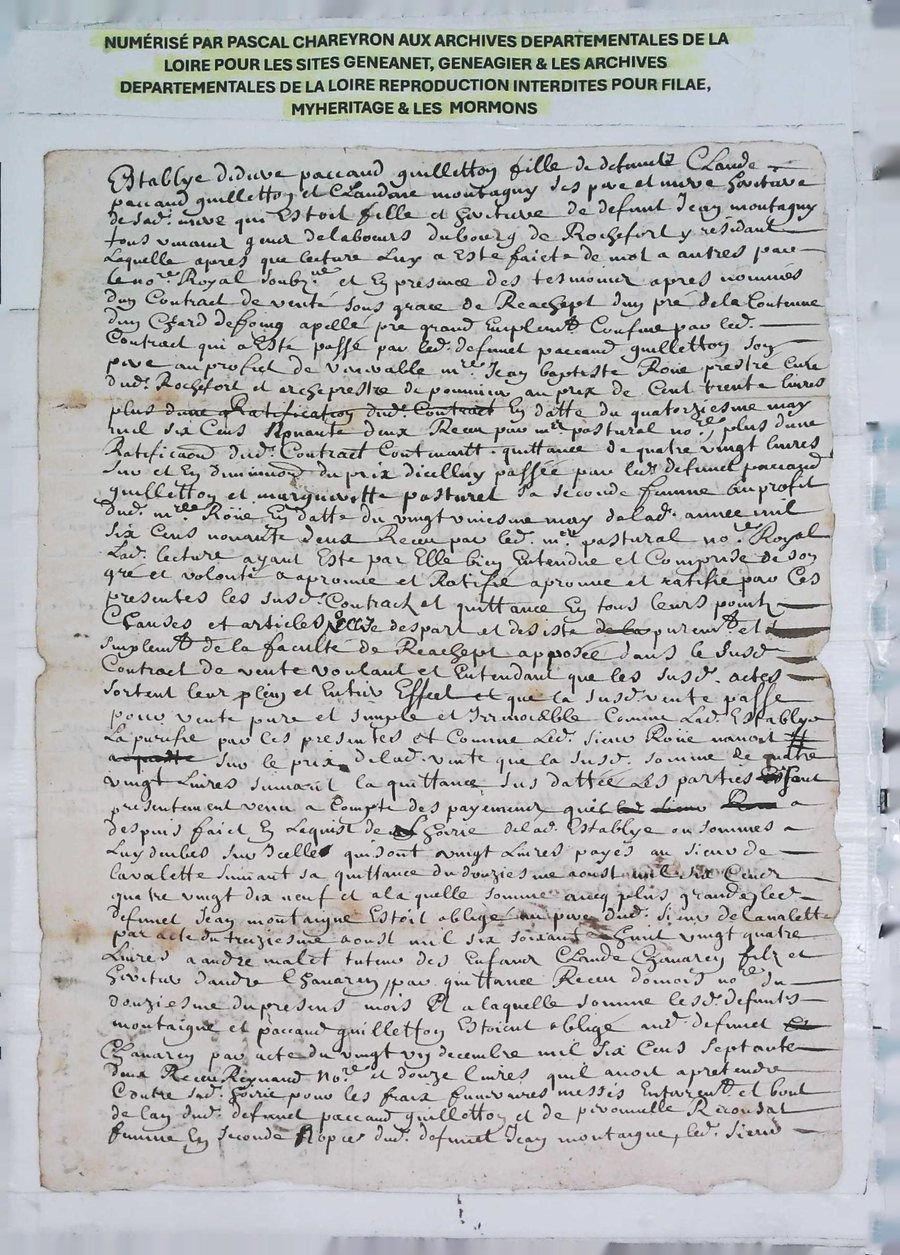 NUMÉRISÉ PAR PASCAL CHAREYRON AUX ARCHIVES DEPARTEMENTALES DE LA
LOIRE POUR LES SITES GENEANET, GENEAGIER & LES ARCHIVES
DEPARTEMENTALES DE LA LOIRE REPRODUCTION INTERDITES POUR FILAE,
MYHERITAGE & LES MORMONS
Establye paccaud guilletton fille de defunts Claude
paccaud guilletton et Claudine montagny ses pere et mere heritiere
de sad. mere qui Estoit fille et heritiere de defunt Jean montagny
tous delabours du bourg de Rochefort y residant
Laquelle apres que lecture Luy a Este faicte de mot a autres par
le no.re Royal soubz.ne et En presence des tesmoins apres nommés
dun Contract de vente sous grace de Reachept dun pré de la Contenue
dun Chard de foing apellé pre grand Confine par led.
Contract qui a Esté passé par led. defunct paccaud guilletton son
pere au profict de venerable m.re Jean baptiste Roüe prestre curé
dud. Rochefort et archeprestre de pommier au prix de Cent trente livres
plus dune Ratification dud. Contract En datte du quatorziesme may
mil six Cens Nonante deux Receu par m.re pastural no.re, plus dune
Ratification dud. Contract Contenant quittance de quatre vingt livres
sur et En diminution du prix dicelluy passée par led. defunct paccaud
guilletton et margueritte pasturel sa seconde femme au profit
dud. m.re Roüe En datte du vingt may de lad. année mil
six Cens nonante deux Receu par led. m.re pastural no.re Royal
Lad. lecture ayant Esté par Elle bien Entendue et Comprise de son
gré et volonté a aprouvé et Ratifié aprouve et ratifie par Ces
presentes les susd. Contract et quittance En tous leurs points
Clauses et articles Elle despart et desiste de la purem.t et
simplem.t de la faculté de Reachept apposée dans le susd.
Contract de vente voulant et Entendant que les susd. actes
sortent leur plein et Entier Effect et que la susd. vente passe
pour vente pure et simple et Irrevocable Comme Lad. Establye
La purifie par Ces presentes et Comme Led. sieur Roüe navoit
sur le prix de lad. vente que la susd. somme de quatre
vingt Livres suivant la quittance sus dattée Les parties
presentement venu a Compte des payements a
despuis faict En Lacquist de Lhoirie de lad. Establye ou sommes a
Luy deubes sur Icelles qui sont vingt Livres payés au sieur de
lavalette suivant sa quittance du douziesme aoust mil six Cens
quatre vingt dix neuf et a la quelle somme avecq plus grande led.
defunct Jean montaigne Estoit obligé au pere dud. sieur de lavalette
par acte du treiziesme aoust mil six soixante huit vingt quatre
Livres a andre malet tuteur des Enfants Claude Chavaren filz et
heritier dandre Chavaren, par quittance Receu no.re du
douziesme du present mois Et a laquelle somme lesd. defunts
montaigne et paccaud guilletton Estoient obligé aud. defunct
Chavaren par acte du vingt decembre mil six Cens septante
deux Receu Reynaud No.re et douze livres quil avoit a pretendre
Contre sad. hoirie pour les frais funeraires messes Enterrem.t et bout
de lan dud. defunct paccaud guilletton et de peronnelle
femme En seconde Nopces dud. defunct Jean montaigne, led. sieur